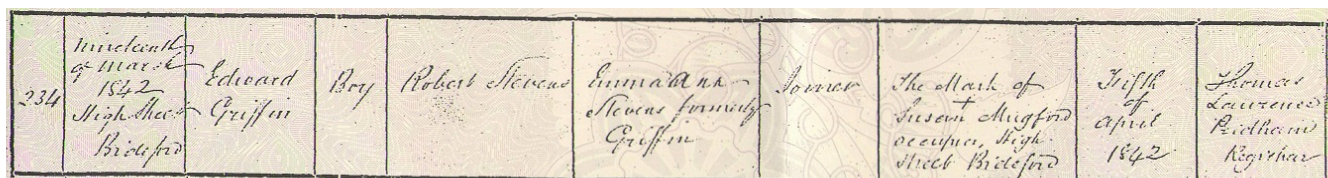 234
Nineteenth
of March
1842
High Street
Bideford
Edward
Griffin
Boy
Robert Stevens
Emma Ann
Stevens formerly
Griffin
Joiner
The Mark of
+
Susan Mugford
occupier, High
Street Bideford
Fifth
of
April
1842
Thomas
Lawrence
Pridham
Registrar